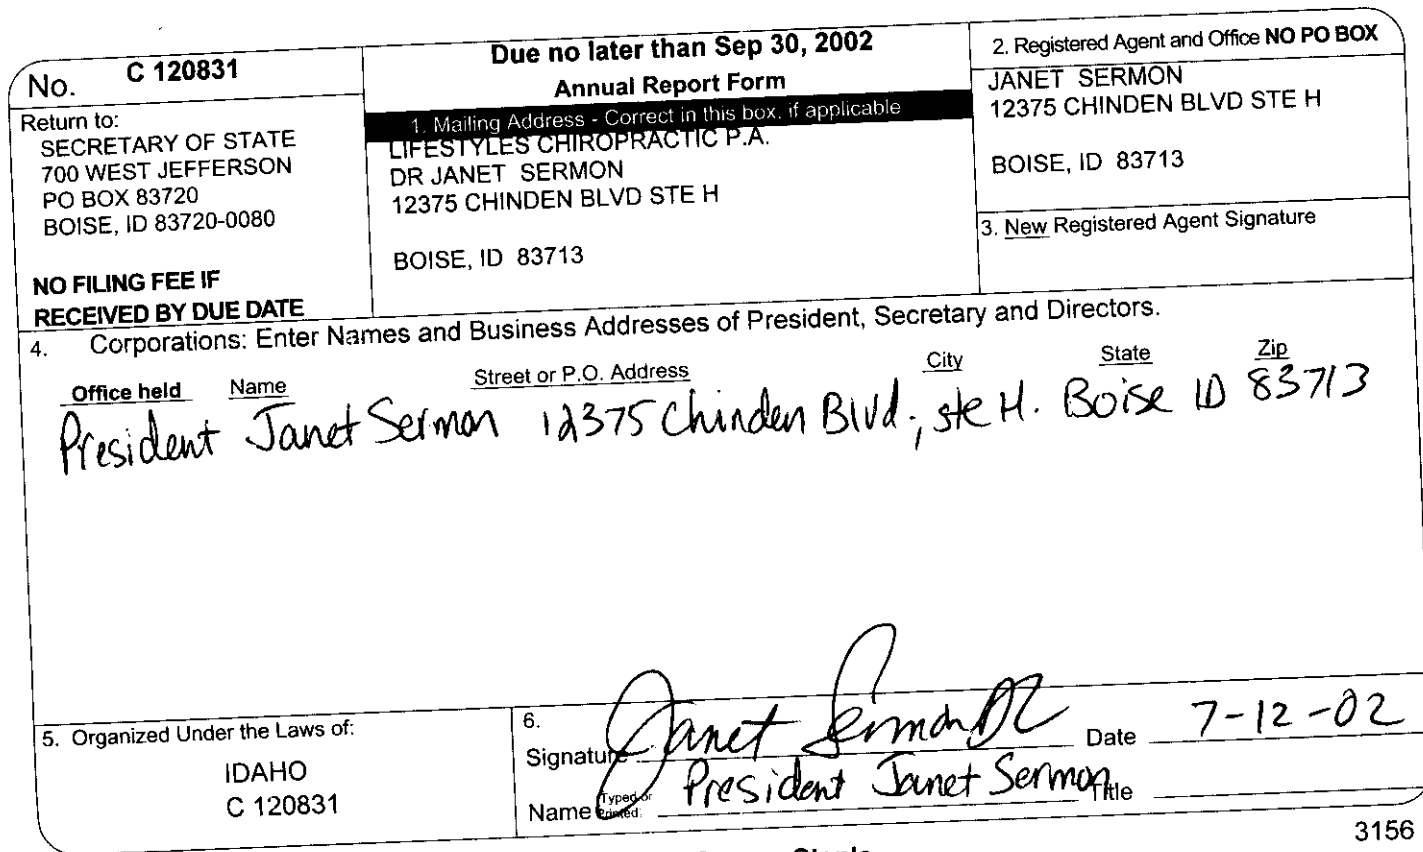 No. C 120831
Return to:
SECRETARY OF STATE
700 WEST JEFFERSON
PO BOX 83720
BOISE, ID 83720-0080
NO FILING FEE IF
RECEIVED BY DUE DATE
Due no later than Sep 30, 2002
Annual Report Form
1. Mailing Address - Correct in this box, if applicable
LIFESTYLES CHIROPRACTIC P.A.
DR JANET SERMON
12375 CHINDEN BLVD STE H
BOISE, ID 83713
2. Registered Agent and Office NO PO BOX
JANET SERMON
12375 CHINDEN BLVD STE H
BOISE, ID 83713
3. New Registered Agent Signature
4. Corporations: Enter Names and Business Addresses of President, Secretary and Directors.
Office held Name Street or P.O. Address City State Zip
President Janet Sermon 12375 Chinden Blvd., ste H. Boise ID 83713
5. Organized Under the Laws of:
IDAHO
C 120831
6.
Signature Janet Sermon DC Date 7-12-02
Name Typed or Printed: President Janet Sermon Title
3156